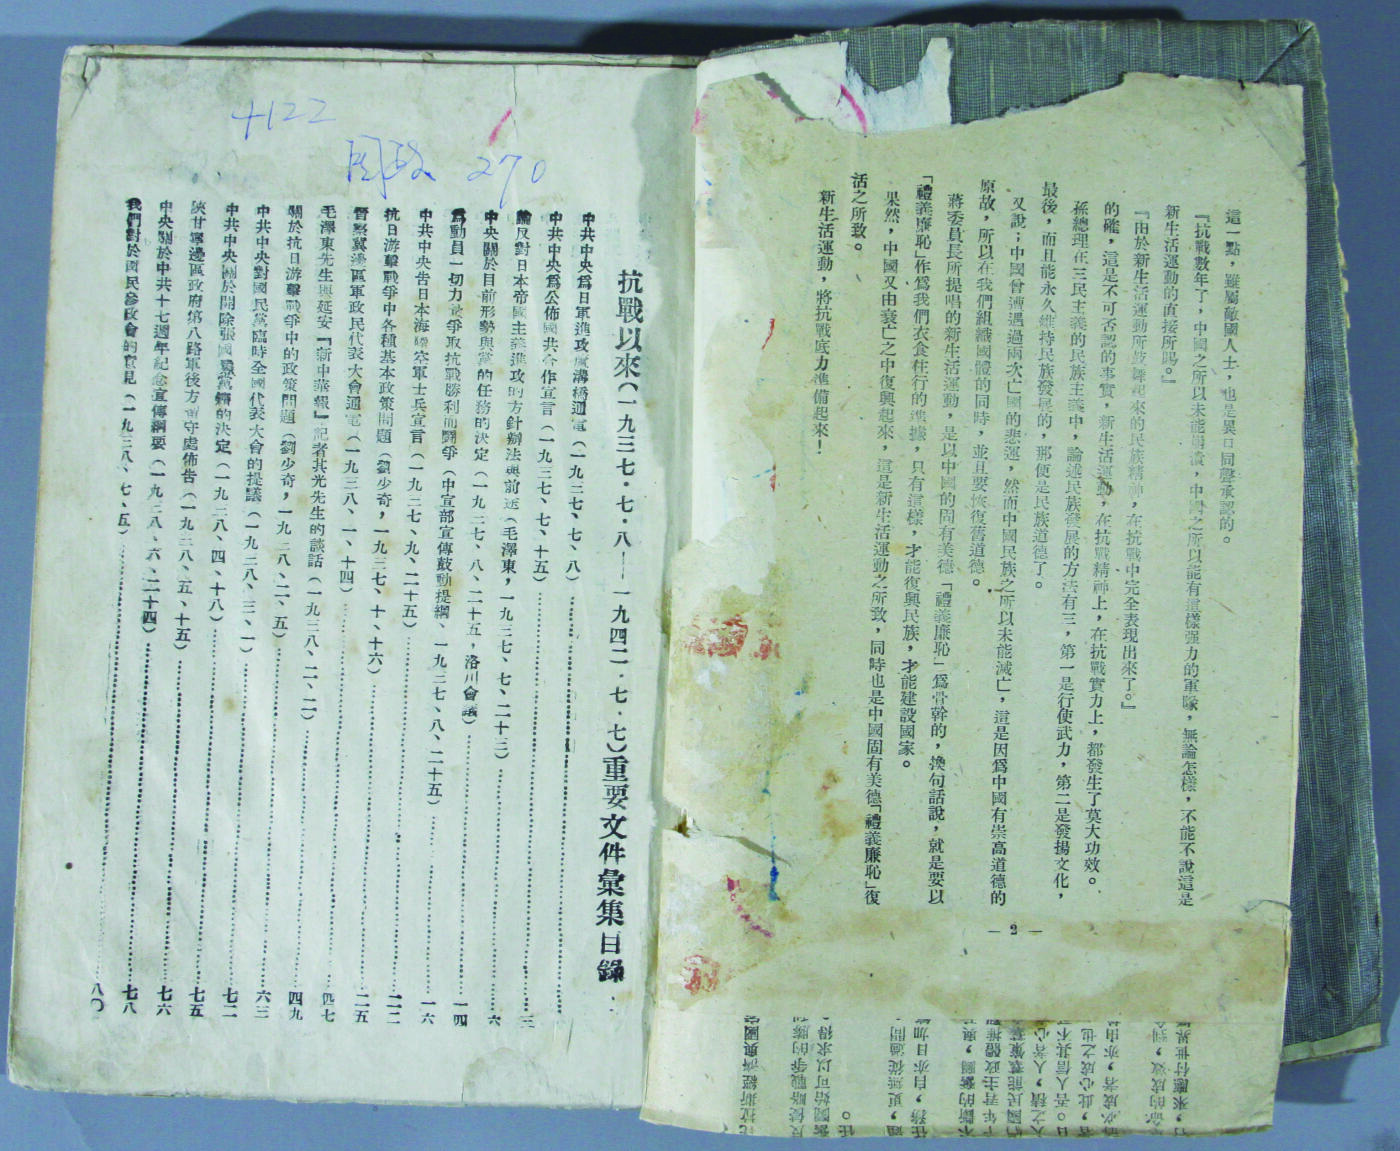 這一點，雖屬敵國人士，也是異口同聲承認的。
『抗戰數年了，中國之所以未能崩潰，中國之所以能有這樣强力的軍隊，無論怎樣，不能不說這是
新生活運動的直接所賜。』
『由於新生活運動所鼓舞起來的民族精神，在抗戰中完全表現出來了。』
的確，這是不可否認的事實，新生活運動，在抗戰精神上，在抗戰實力上，都發生了莫大功效。
孫總理在三民主義的民族主義中，論述民族發展的方法有三，第一是行使武力，第二是發揚文化，
最後，而且能永久維持民族發展的，那便是民族道德了。
又說；中國曾遭遇過兩次亡國的悲運，然而中國民族之所以未能滅亡，這是因爲中國有崇高道德的
原故，所以在我們組織國體的同時，並且要恢復舊道德。
蔣委員長所提唱的新生活運動，是以中國的固有美德「禮義廉恥」爲骨幹的，換句話說，就是要以
「禮義廉恥」作爲我們衣食住行的準據，只有這樣，才能復興民族，才能建設國家。
果然，中國又由衰亡之中復興起來，這是新生活運動之所致，同時也是中國固有美德「禮義廉恥」復
活之所致。
新生活運動，將抗戰底力準備起來！
— 2 —
4122
270
抗戰以來（一九三七·七·八——一九四二·七·七）重要文件彙集目錄
中共中央爲日軍進攻盧溝橋通電（一九三七、七、八）
中共中央爲公佈國共合作宣言（一九三七、七、十五）
論反對日本帝國主義進攻的方針辦法與前途（毛澤東，一九三七、七、二十三）……三
中央關於目前形勢與黨的任務的決定（一九三七、八、二十五，洛川會議）……六
爲動員一切力量爭取抗戰勝利而鬪爭（中宣部宣傳鼓動提綱、一九三七、八、二十五）……一四
中共中央告日本海陸空軍士兵宣言（一九三七、九、二十五）……一六
抗日游擊戰爭中各種基本政策問題（劉少奇，一九三七、十、十六）……二二
晉察冀邊區軍政民代表大會通電（一九三八、一、十四）……二五
毛澤東先生與延安『新中華報』記者其光先生的談話（一九三八、二、二）……四七
關於抗日游擊戰爭中的政策問題（劉少奇，一九三八、二、五）……四九
中共中央對國民黨臨時全國代表大會的提議（一九三八、三、一）……六三
中共中央關於開除張國燾黨籍的決定（一九三八、四、十八）……七二
陝甘寧邊區政府第八路軍後方留守處佈告（一九三八、五、十五）……七五
中央關於中共十七週年紀念宣傳綱要（一九三八、六、二十四）……七六
我們對於國民參政會的意見（一九三八、七、五）……七八
……八〇